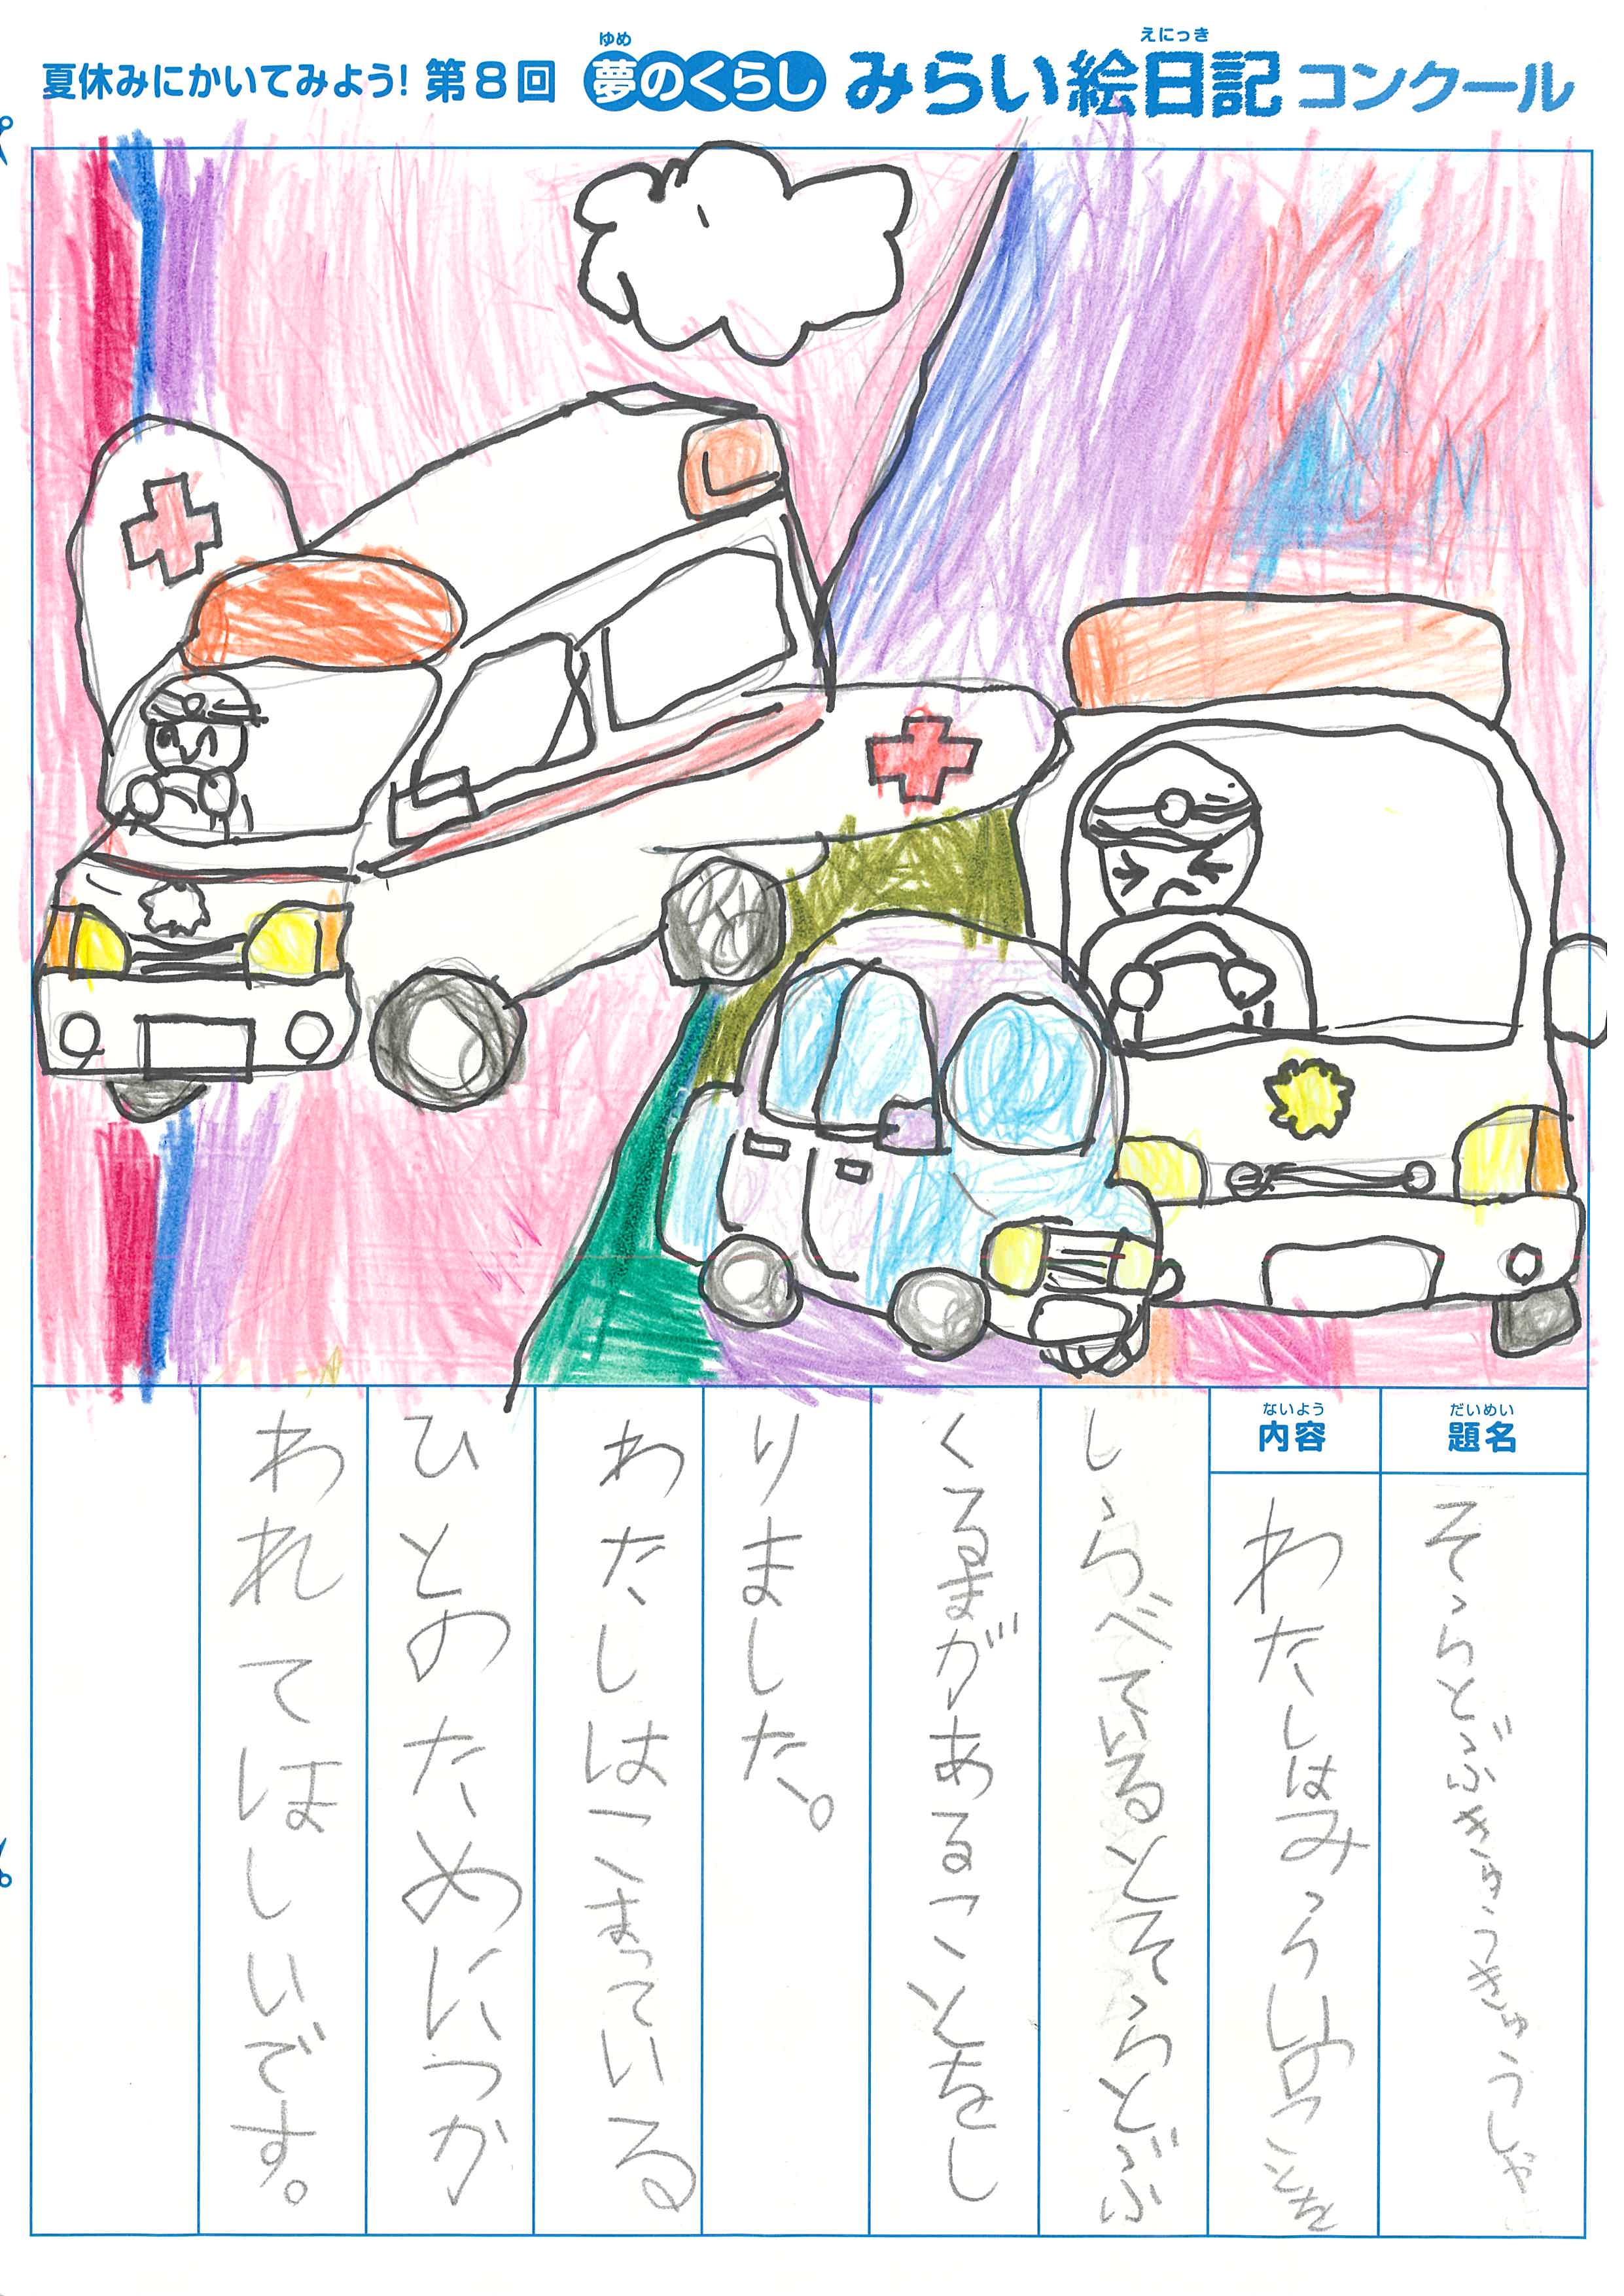 夏休みにかいてみよう! 第8回 夢のくらし みらい絵日記 コンクール
ゆめ
えにっき
だいめい
題名
そらとぶきゅうきゅうしゃ
ないよう
内容
わたしはみらいのことを
しらべているとそらとぶ
くるまがあることをし
りました。
わたしはこまっている
ひとのためにつか
われてほしいです。